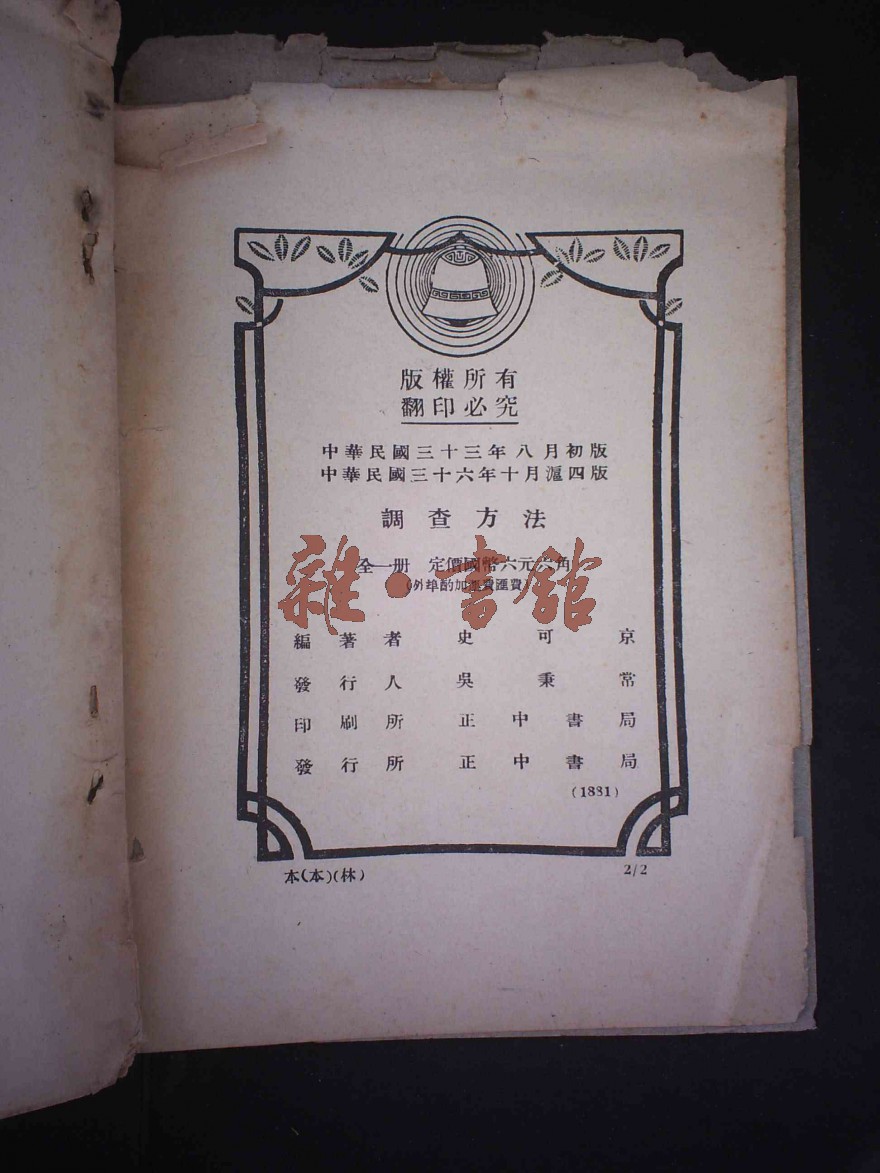 版權所有
翻印必究
中華民國三十三年八月初版
中華民國三十六年十月滬四版
調查方法
全一冊 定價國幣六元六角
(外埠酌加運費匯費)
雜·書館
編著者 史可京
發行人 吳秉常
印刷所 正中書局
發行所 正中書局
(1881)
本(本)(林)
2/2